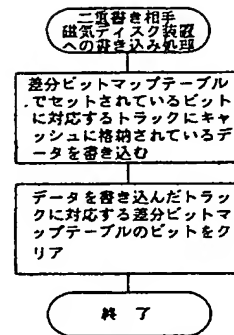 二重書き相手
磁気ディスク装置
への書き込み処理
差分ビットマップテーブル
でセットされているビット
に対応するトラックにキャ
ッシュに格納されているデ
ータを書き込む
データを書き込んだトラッ
クに対応する差分ビットマ
ップテーブルのビットをク
リア
終了